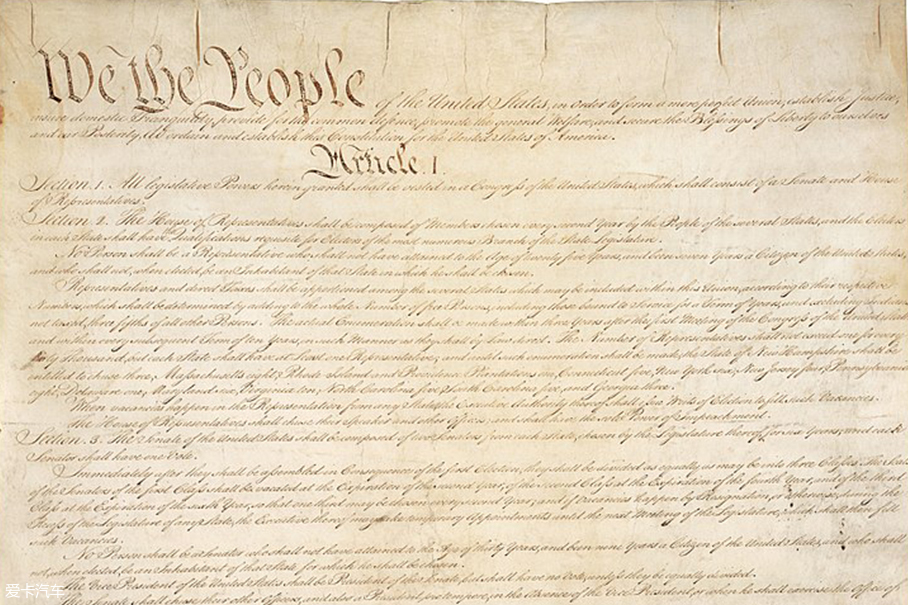 We the People of the United States, in Order to form a more perfect Union, establish Justice,
insure domestic Tranquility, provide for the common defence, promote the general Welfare, and secure the Blessings of Liberty to ourselves
and our Posterity, do ordain and establish this Constitution for the United States of America.
Article. I.
Section. 1. All legislative Powers herein granted shall be vested in a Congress of the United States, which shall consist of a Senate and House
of Representatives.
Section. 2. The House of Representatives shall be composed of Members chosen every second Year by the People of the several States, and the Electors
in each State shall have Qualifications requisite for Electors of the most numerous Branch of the State Legislature.
No Person shall be a Representative who shall not have attained to the Age of twenty five Years, and been seven Years a Citizen of the United States,
and who shall not, when elected, be an Inhabitant of that State in which he shall be chosen.
Representatives and direct Taxes shall be apportioned among the several States which may be included within this Union, according to their respective
Numbers, which shall be determined by adding to the whole Number of free Persons, including those bound to Service for a Term of Years, and excluding Indians
not taxed, three fifths of all other Persons. The actual Enumeration shall be made within three Years after the first Meeting of the Congress of the United States,
and within every subsequent Term of ten Years, in such Manner as they shall by Law direct. The Number of Representatives shall not exceed one for every
thirty Thousand, but each State shall have at Least one Representative; and until such enumeration shall be made, the State of New Hampshire shall be
entitled to chuse three, Massachusetts eight, Rhode Island and Providence Plantations one, Connecticut five, New York six, New Jersey four, Pennsylvania
eight, Delaware one, Maryland six, Virginia ten, North Carolina five, South Carolina five, and Georgia three.
When vacancies happen in the Representation from any State, the Executive Authority thereof shall issue Writs of Election to fill such Vacancies.
The House of Representatives shall chuse their Speaker and other Officers; and shall have the sole Power of Impeachment.
Section. 3. The Senate of the United States shall be composed of two Senators from each State, chosen by the Legislature thereof, for six Years; and each
Senator shall have one Vote.
Immediately after they shall be assembled in Consequence of the first Election, they shall be divided as equally as may be into three Classes. The Seats
of the Senators of the first Class shall be vacated at the Expiration of the second Year, of the second Class at the Expiration of the fourth Year, and of the third
Class at the Expiration of the sixth Year, so that one third may be chosen every second Year; and if Vacancies happen by Resignation, or otherwise, during the
Recess of the Legislature of any State, the Executive thereof may make temporary Appointments until the next Meeting of the Legislature, which shall then fill
such Vacancies.
No Person shall be a Senator who shall not have attained to the Age of thirty Years, and been nine Years a Citizen of the United States, and who shall
not, when elected, be an Inhabitant of that State for which he shall be chosen.
The Vice President of the United States shall be President of the Senate, but shall have no Vote, unless they be equally divided.
The Senate shall chuse their other Officers, and also a President pro tempore, in the Absence of the Vice President, or when he shall exercise the Office of
爱卡汽车